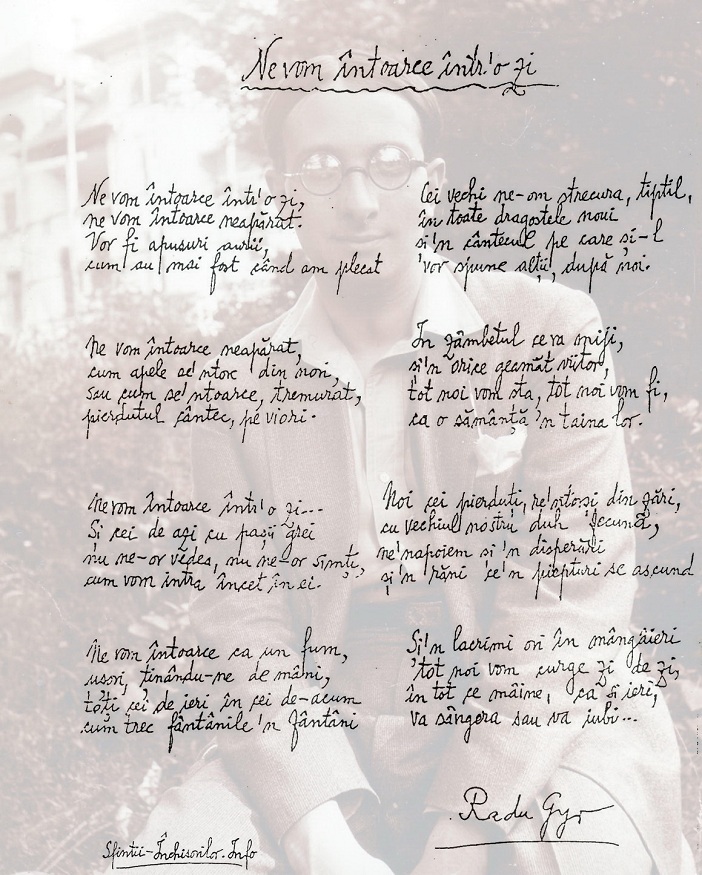 Ne vom întoarce într'o zi
Ne vom întoarce într'o zi,
ne vom întoarce neapărat.
Vor fi apusuri aurii,
cum au mai fost când am plecat
Ne vom întoarce neapărat,
cum apele se'ntorc din nori,
sau cum se'ntoarce, tremurat,
pierdutul cântec, pe viori.
Ne vom întoarce într'o zi...
Si cei de azi cu pașii grei
nu ne-or vedea, nu ne-or simți,
cum vom intra încet în ei.
Ne vom întoarce ca un fum,
ușori, ținându-ne de mâni,
toți cei de ieri în cei de-acum
cum trec fântânile'n fântâni
Cei vechi ne-om strecura, tiptil,
în toate dragostele noui
si'n cântecul pe care și-l
vor spune alții, după noi.
In zâmbetul ce va miji,
si'n orice geamăt viitor,
tot noi vom sta, tot noi vom fi,
ca o sămânță 'n taina lor.
Noi cei pierduți, re'ntorși din zări,
cu vechiul nostru duh fecund,
ne'napoiem si'n disperări
și'n răni ce'n piepturi se ascund
Si'n lacrimi ori în mângâieri
tot noi vom curge zi de zi,
în tot ce mâine, ca și ieri,
va sângera sau va iubi...
Radu Gyr
Sfintii-Închisorilor.Info